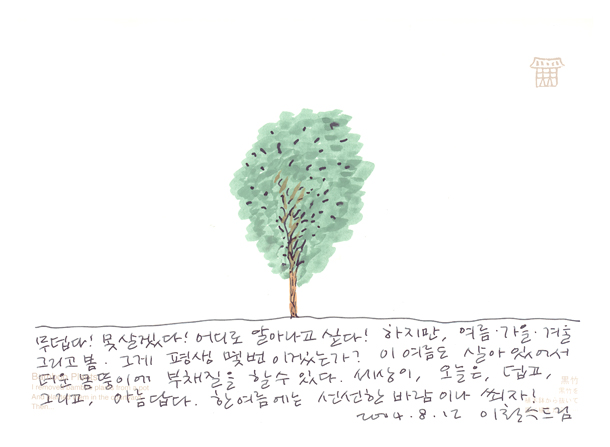 무덥다! 못살겠다! 어디로 달아나고 싶다! 하지만, 여름·가을·겨울
그리고 봄. 그게 평생 몇번이겠는가? 이 여름도 살아 있어서
더운 몸뚱이에 부채질을 할 수 있다. 세상이, 오늘은, 덥고,
그리고, 아름답다. 한여름에는 선선한 바람이나 쐬자!
2004.8.12 이철수드림
黑竹